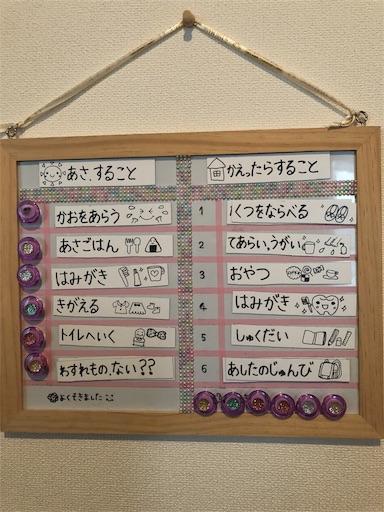 あさ、すること
かおをあらう
あさごはん
はみがき
きがえる
トイレへいく
わすれもの、ない??
よくできました
かえったらすること
1 くつをならべる
2 てあらい,うがい
3 おやつ
4 はみがき
5 しゅくだい
6 あしたのじゅんび